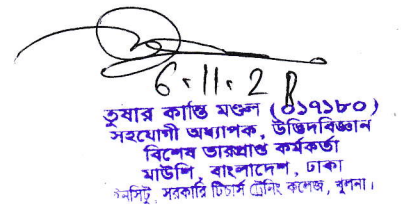 6.11.2
তুষার কান্তি মণ্ডল (০১৭১৮০)
সহযোগী অধ্যাপক, উদ্ভিদবিজ্ঞান
বিশেষ ভারপ্রাপ্ত কর্মকর্তা
মাউশি, বাংলাদেশ, ঢাকা
ইনসিটু, সরকারি টিচার্স ট্রেনিং কলেজ, খুলনা।